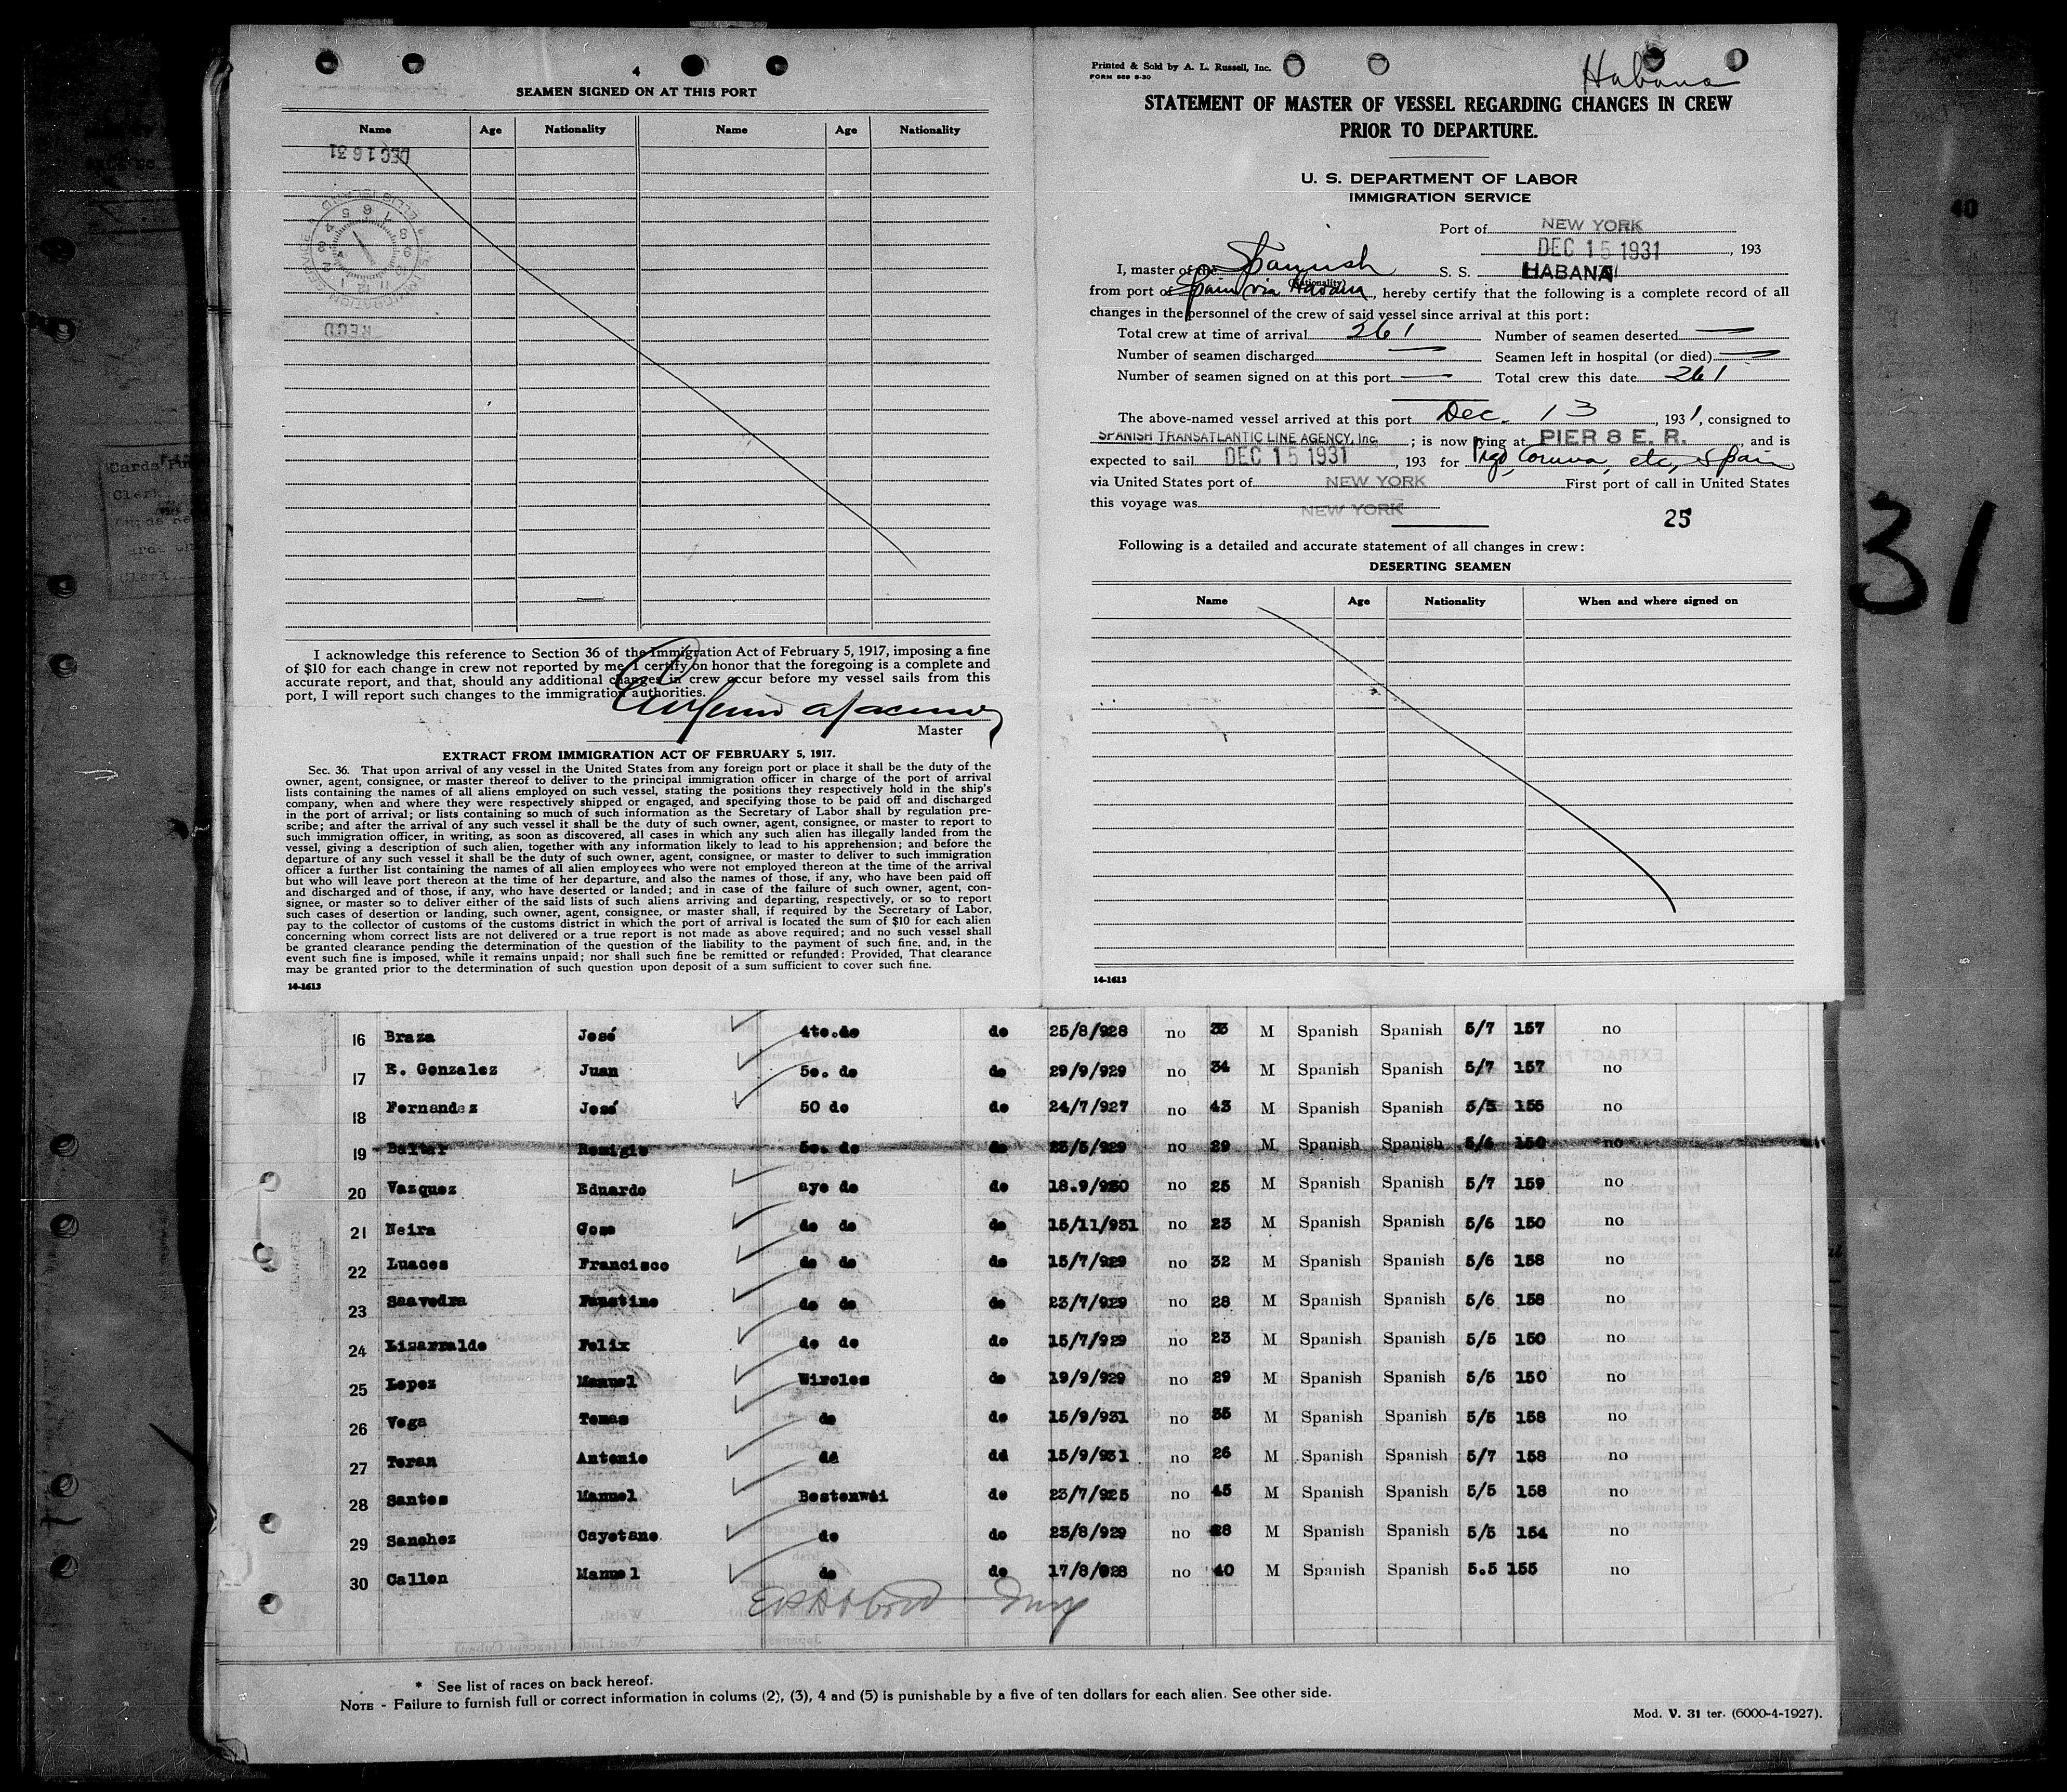 4
SEAMEN SIGNED ON AT THIS PORT
Name Age Nationality Name Age Nationality
DEC 16 31
ELLIS ISLAND
IMMIGRATION SERVICE
REC'D
I acknowledge this reference to Section 36 of the Immigration Act of February 5, 1917, imposing a fine
of $10 for each change in crew not reported by me. I certify on honor that the foregoing is a complete and
accurate report, and that, should any additional changes in crew occur before my vessel sails from this
port, I will report such changes to the immigration authorities.
Master
EXTRACT FROM IMMIGRATION ACT OF FEBRUARY 5, 1917.
Sec. 36. That upon arrival of any vessel in the United States from any foreign port or place it shall be the duty of the
owner, agent, consignee, or master thereof to deliver to the principal immigration officer in charge of the port of arrival
lists containing the names of all aliens employed on such vessel, stating the positions they respectively hold in the ship's
company, when and where they were respectively shipped or engaged, and specifying those to be paid off and discharged
in the port of arrival; or lists containing so much of such information as the Secretary of Labor shall by regulation pre-
scribe; and after the arrival of any such vessel it shall be the duty of such owner, agent, consignee, or master to report to
such immigration officer, in writing, as soon as discovered, all cases in which any such alien has illegally landed from the
vessel, giving a description of such alien, together with any information likely to lead to his apprehension; and before the
departure of any such vessel it shall be the duty of such owner, agent, consignee, or master to deliver to such immigration
officer a further list containing the names of all alien employees who were not employed thereon at the time of the arrival
but who will leave port thereon at the time of her departure, and also the names of those, if any, who have been paid off
and discharged and of those, if any, who have deserted or landed; and in case of the failure of such owner, agent, con-
signee, or master so to deliver either of the said lists of such aliens arriving and departing, respectively, or so to report
such cases of desertion or landing, such owner, agent, consignee, or master shall, if required by the Secretary of Labor,
pay to the collector of customs of the customs district in which the port of arrival is located the sum of $10 for each alien
concerning whom correct lists are not delivered or a true report is not made as above required; and no such vessel shall
be granted clearance pending the determination of the question of the liability to the payment of such fine, and, in the
event such fine is imposed, while it remains unpaid; nor shall such fine be remitted or refunded: Provided, That clearance
may be granted prior to the determination of such question upon deposit of a sum sufficient to cover such fine.
14-1613
Printed & Sold by A. L. Russell, Inc.
FORM 689 8-30
Habana
STATEMENT OF MASTER OF VESSEL REGARDING CHANGES IN CREW
PRIOR TO DEPARTURE.
U. S. DEPARTMENT OF LABOR
IMMIGRATION SERVICE
Port of NEW YORK
DEC 15 1931, 193
I, master of the Spanish S. S. HABANA
(Nationality)
from port of Spain via Havana, hereby certify that the following is a complete record of all
changes in the personnel of the crew of said vessel since arrival at this port:
Total crew at time of arrival 261 Number of seamen deserted —
Number of seamen discharged — Seamen left in hospital (or died) —
Number of seamen signed on at this port — Total crew this date 261
The above-named vessel arrived at this port Dec. 13, 1931, consigned to
SPANISH TRANSATLANTIC LINE AGENCY, Inc.; is now lying at PIER 8 E. R., and is
expected to sail DEC 15 1931, 193 for Vigo, Coruna, etc, Spain
via United States port of NEW YORK First port of call in United States
this voyage was NEW YORK
25
Following is a detailed and accurate statement of all changes in crew:
DESERTING SEAMEN
Name Age Nationality When and where signed on
14-1613
31
40
16 Braza José 4to.do do 25/8/928 no 35 M Spanish Spanish 5/7 157 no
17 R. Gonzalez Juan 5o. do do 29/9/929 no 34 M Spanish Spanish 5/7 157 no
18 Fernandez José 50 do do 24/7/927 no 43 M Spanish Spanish 5/5 155 no
19 Baltar Remigio 5o. do do 23/5/929 no 29 M Spanish Spanish 5/6 150 no
20 Vazquez Eduardo aye do do 18.9/930 no 25 M Spanish Spanish 5/7 159 no
21 Neira Gose do do do 15/11/931 no 23 M Spanish Spanish 5/6 150 no
22 Luaces Francisco do do do 15/7/929 no 32 M Spanish Spanish 5/6 158 no
23 Saavedra Faustino do do do 23/7/929 no 28 M Spanish Spanish 5/6 158 no
24 Lizarralde Felix do do do 15/7/929 no 23 M Spanish Spanish 5/5 150 no
25 Lopez Manuel Wireles do 19/9/929 no 29 M Spanish Spanish 5/5 150 no
26 Vega Tomas do do 15/9/931 no 35 M Spanish Spanish 5/5 158 no
27 Teran Antonio dd dd 15/9/931 no 26 M Spanish Spanish 5/7 158 no
28 Santos Manuel Bostenwai do 23/7/925 no 45 M Spanish Spanish 5/5 158 no
29 Sanchez Cayetano do do 23/8/929 no 28 M Spanish Spanish 5/5 154 no
30 Callen Manuel do do 17/8/928 no 40 M Spanish Spanish 5.5 155 no
* See list of races on back hereof.
NOTE - Failure to furnish full or correct information in colums (2), (3), 4 and (5) is punishable by a five of ten dollars for each alien. See other side.
Mod. V. 31 ter. (6000-4-1927).